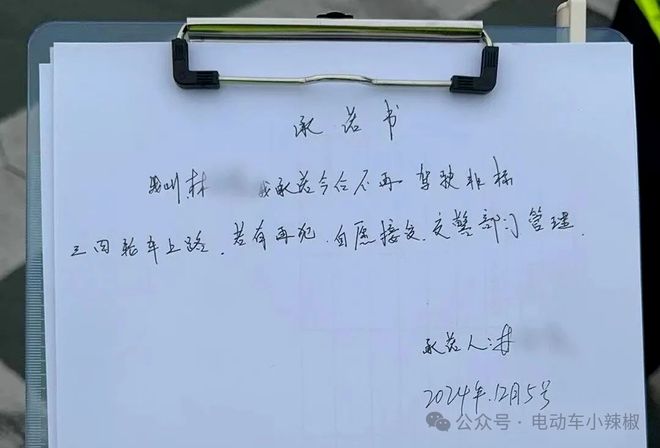 承诺书
我叫林 我承诺今后不再驾驶非标
三四轮车上路，若有再犯，自愿接受交警部门管理。
承诺人：林
2024年12月5号
公众号·电动车小辣椒